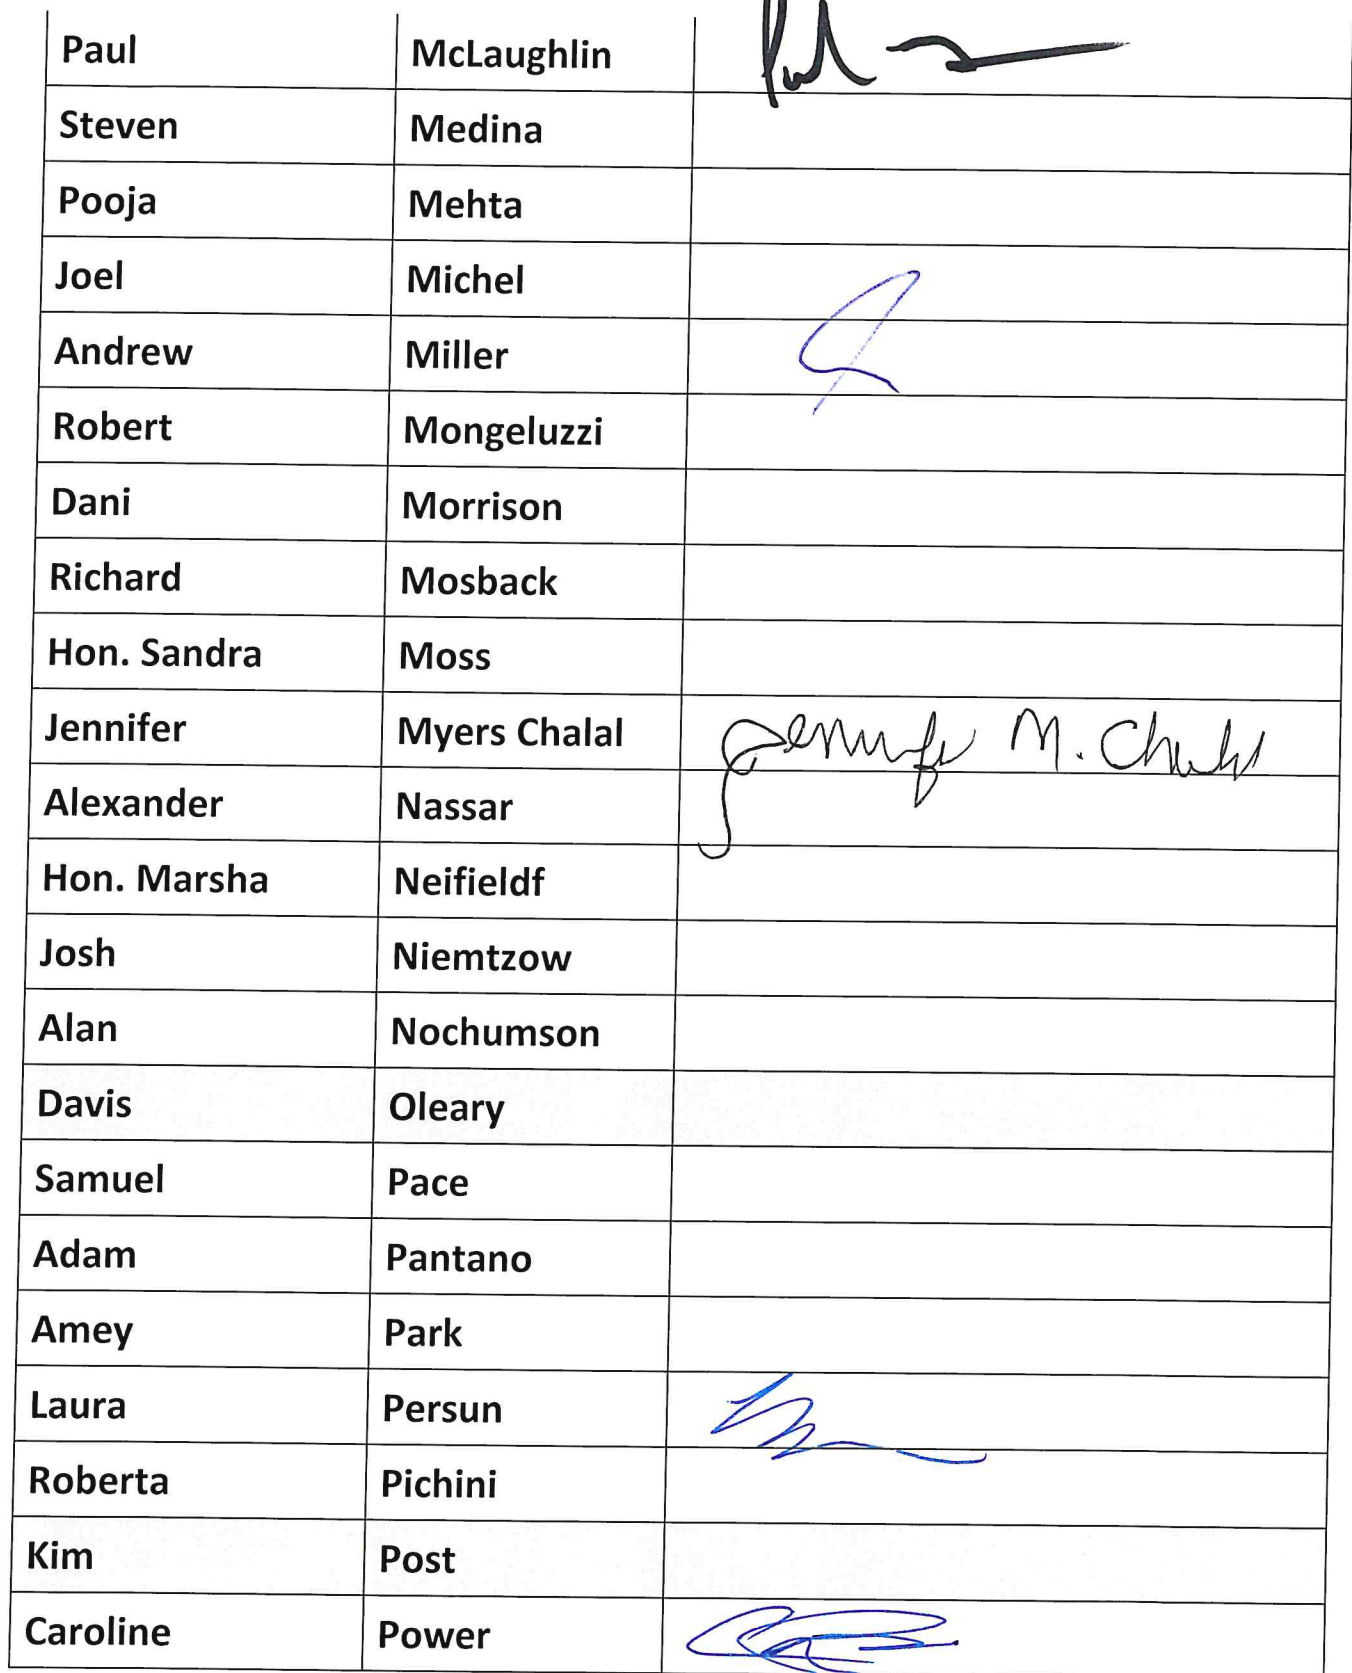 Paul McLaughlin
Steven Medina
Pooja Mehta
Joel Michel
Andrew Miller
Robert Mongeluzzi
Dani Morrison
Richard Mosback
Hon. Sandra Moss
Jennifer Myers Chalal Jennifer M. Chalal
Alexander Nassar
Hon. Marsha Neifieldf
Josh Niemtzow
Alan Nochumson
Davis Oleary
Samuel Pace
Adam Pantano
Amey Park
Laura Persun
Roberta Pichini
Kim Post
Caroline Power